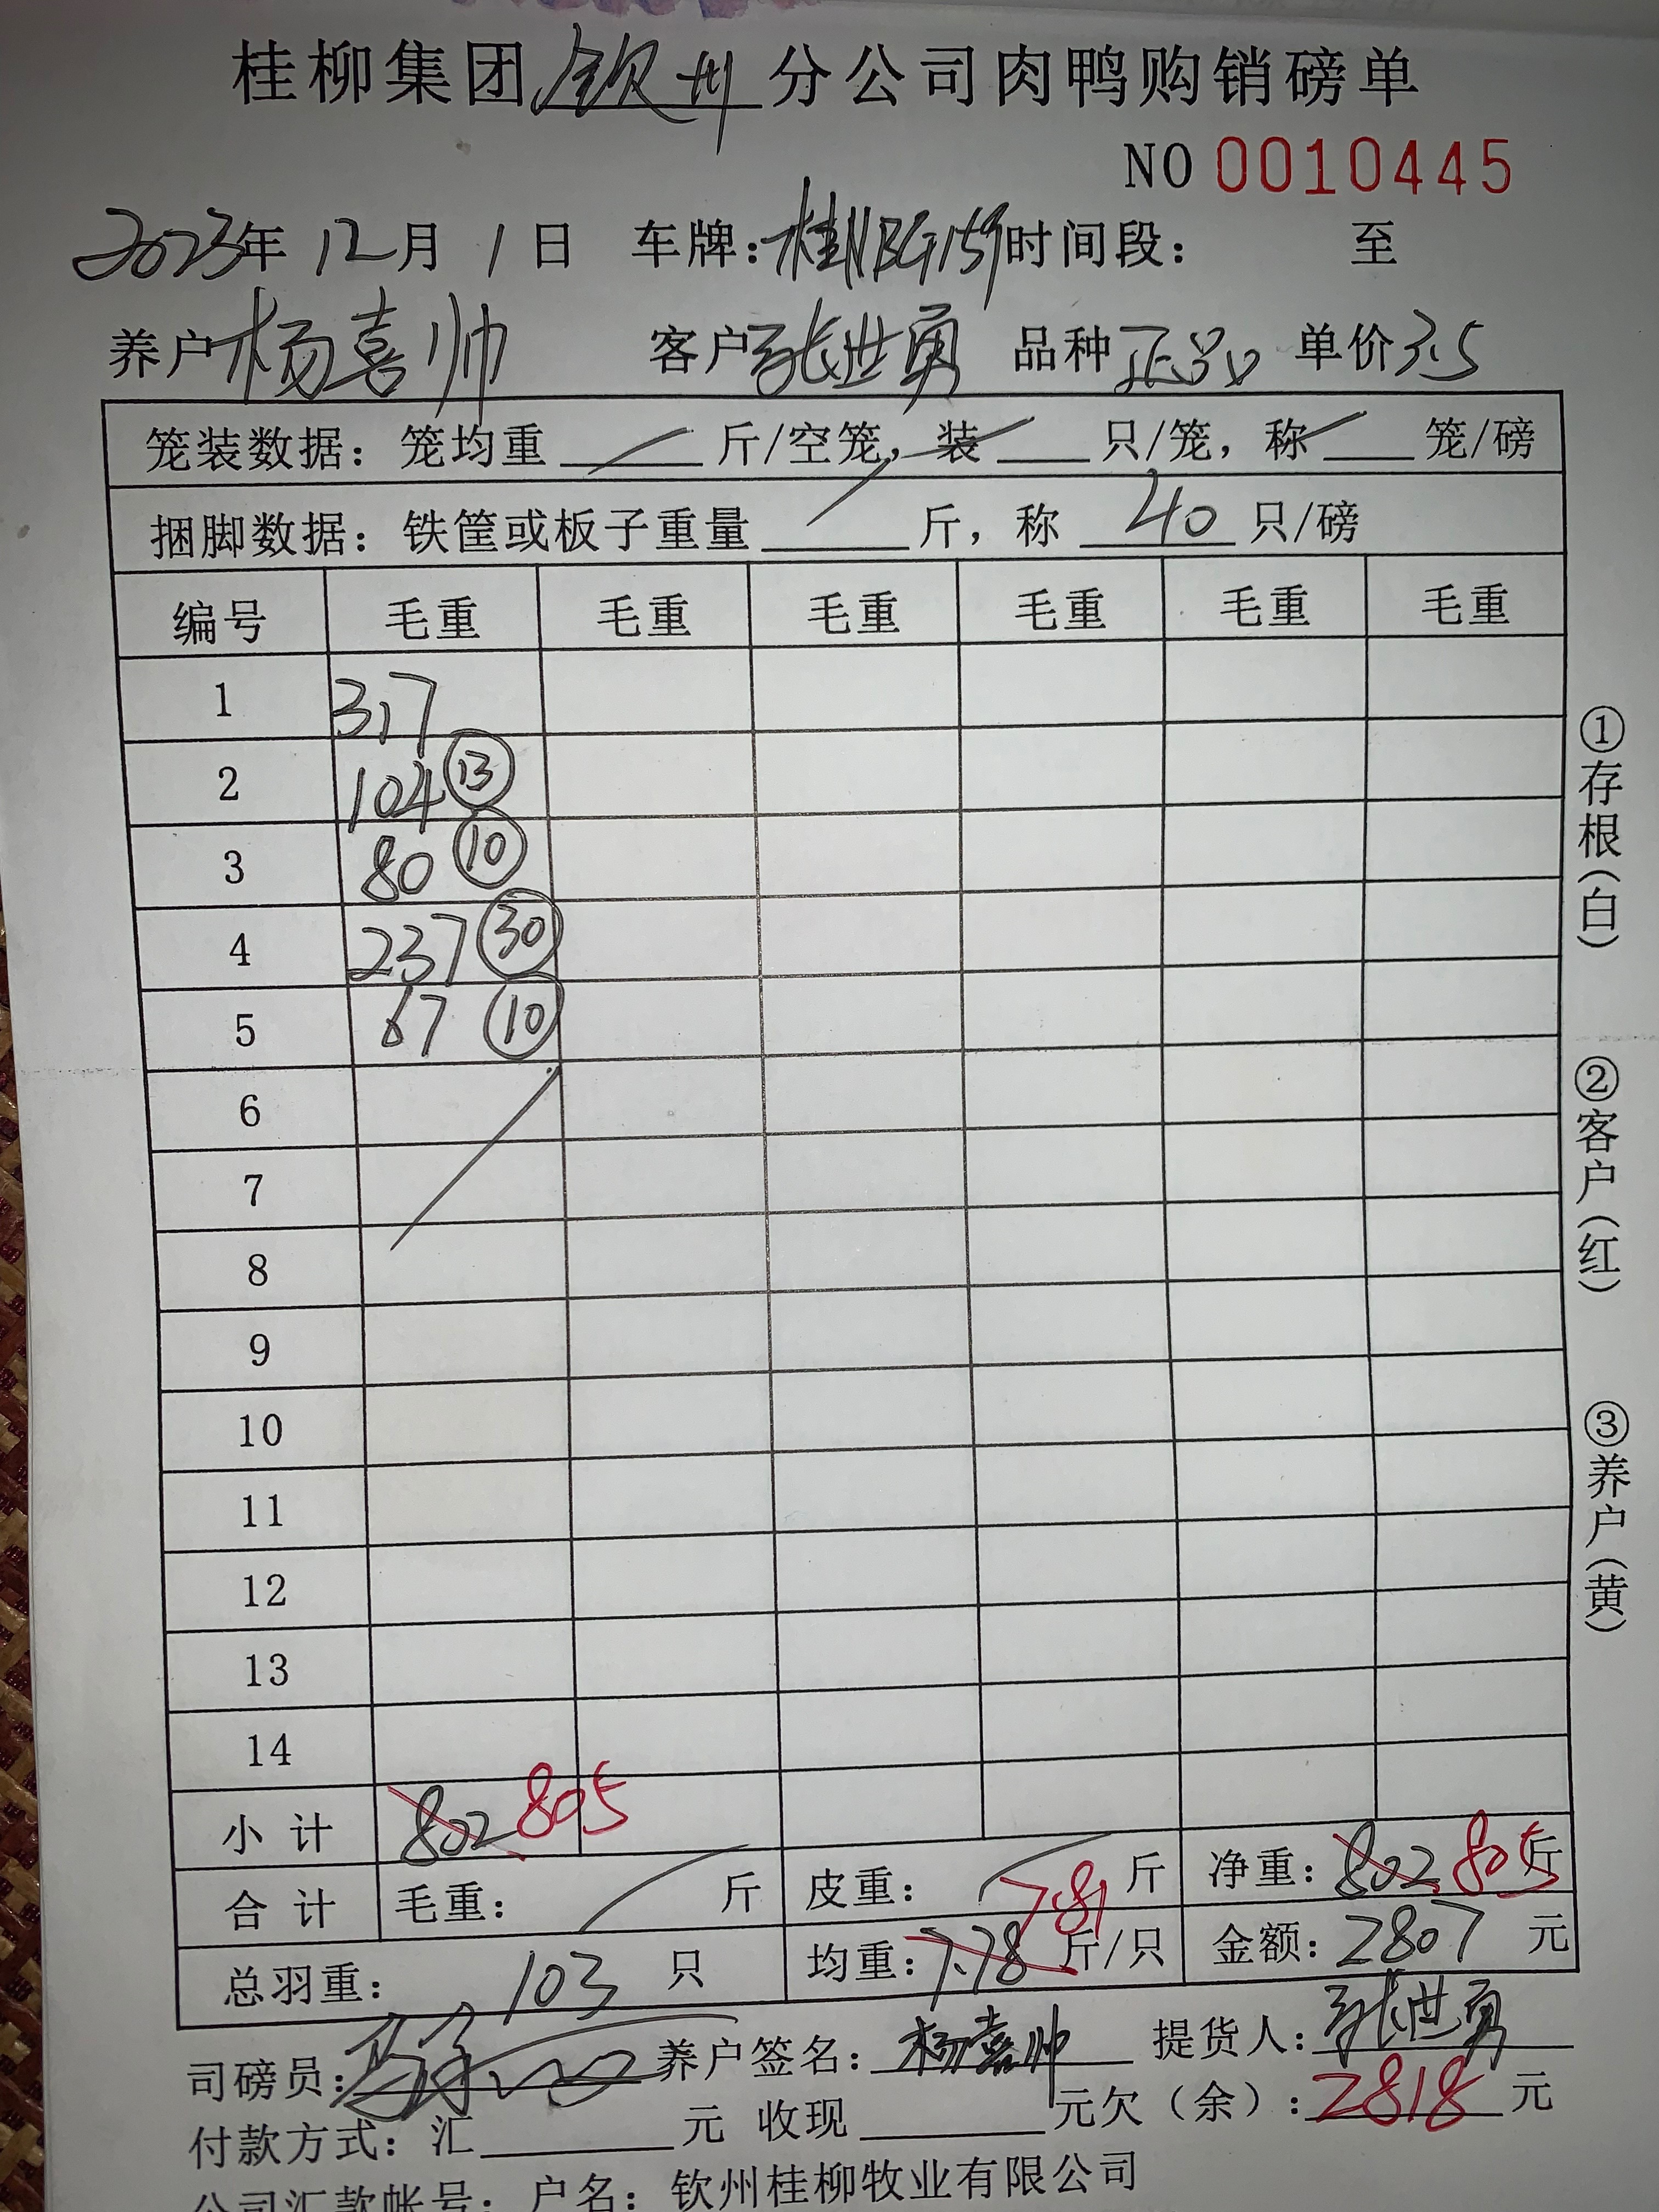 桂柳集团 钦州 分公司肉鸭购销磅单
NO 0010445
2023年 12月 1日 车牌:桂NBG159 时间段: 至
养户 杨喜帅 客户 张世勇 品种 正品 单价 3.5
笼装数据: 笼均重 / 斤/空笼, 装 / 只/笼, 称 / 笼/磅
捆脚数据: 铁筐或板子重量 / 斤, 称 40 只/磅
编号 毛重 毛重 毛重 毛重 毛重 毛重
1 317
2 104 ⑬
3 80 ⑩
4 237 ㉚
5 67 ⑩
6
7
8
9
10
11
12
13
14
小 计 802 805
合 计 毛重: / 斤 皮重: / 斤 净重: 802 805 斤
总羽重: 103 只 均重: 7.78 7.81 斤/只 金额: 2807 元
司磅员: 养户签名: 杨喜帅 提货人: 张世勇
付款方式: 汇 元 收现 元 欠（余）: 2818 元
公司汇款帐号: 户名: 钦州桂柳牧业有限公司
①存根（白）
②客户（红）
③养户（黄）